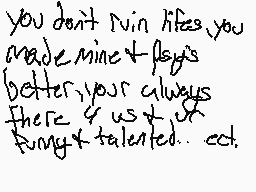 you don't ruin lifes, you
made mine & Psy's
better, your always
there 4 us & ur
funny & talented.. ect.